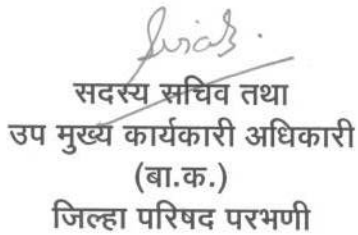 सदस्य सचिव तथा
उप मुख्य कार्यकारी अधिकारी
(बा.क.)
जिल्हा परिषद परभणी